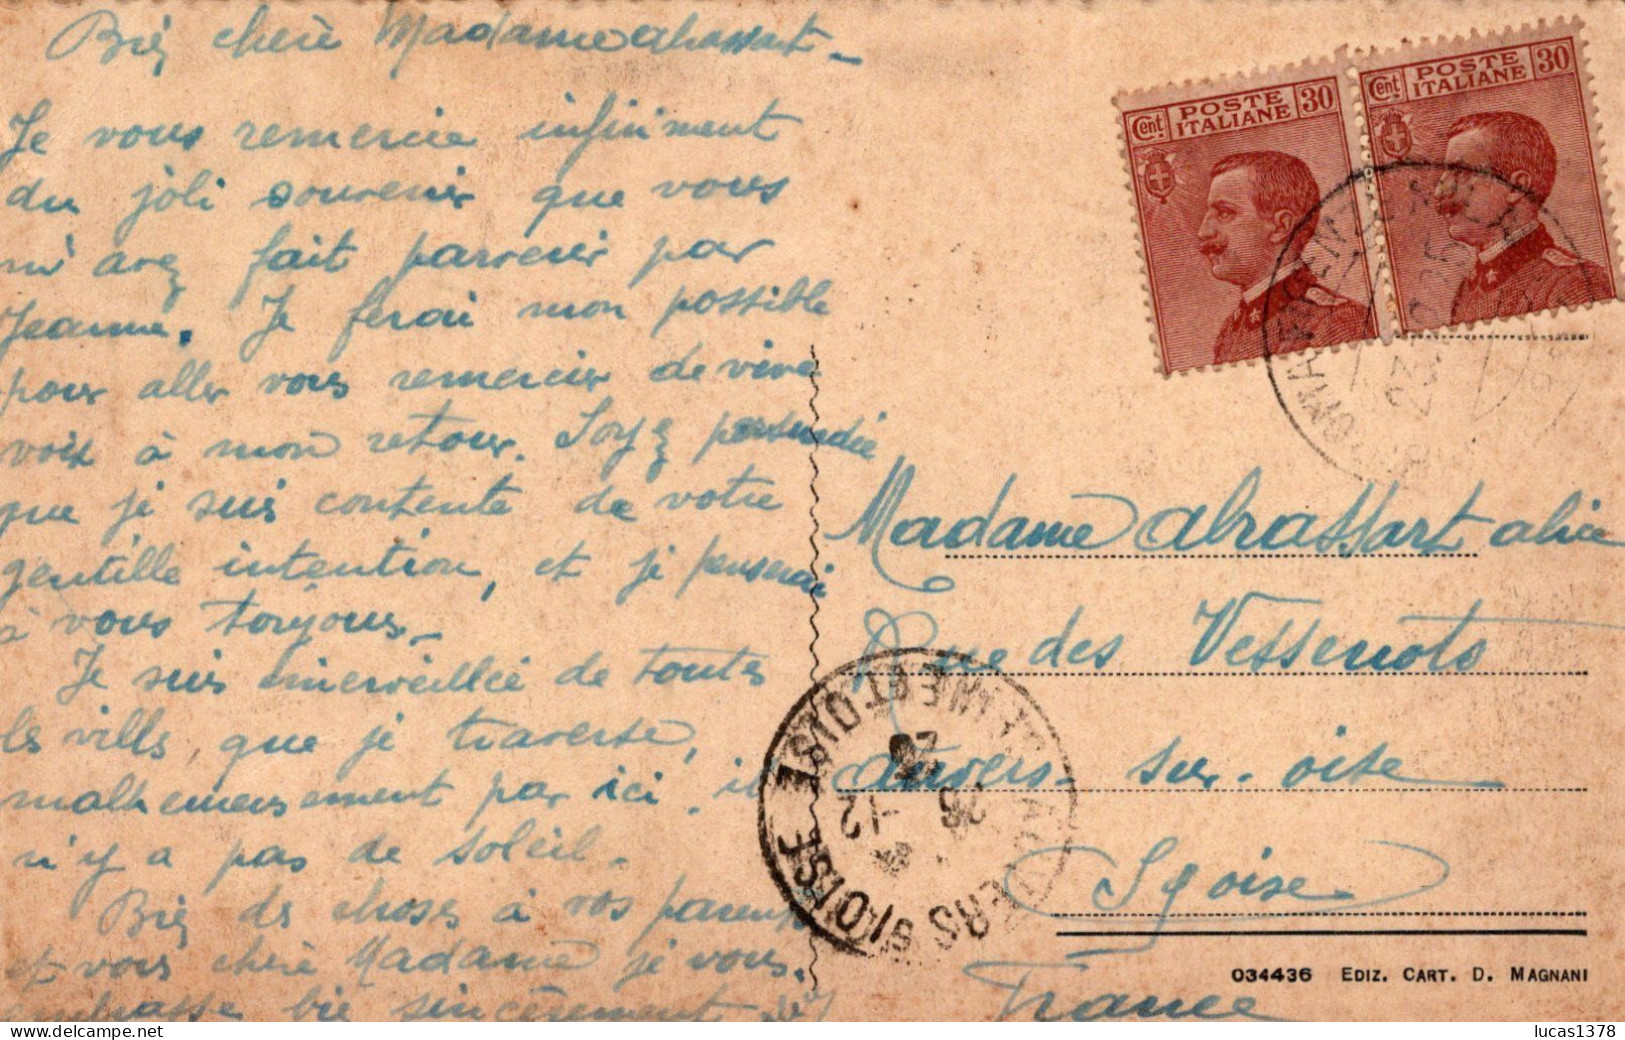 Bié chère Madame abrassart_
Je vous remercie infiniment
du joli souvenir que vous
m'avez fait parvenir par
Jeanne. Je ferai mon possible
pour aller vous remercier de vive
voix à mon retour. Soyez persuadée
que je suis contente de votre
gentille intention, et je penserai
à vous toujours_
Je suis émerveillée de toutes
les villes, que je traverse,
malheureusement par ici, il
n'y a pas de soleil.
Bié des choses à vos parents
et vous chère Madame je vous.
embrasse bié sincèrement
Cent. POSTE ITALIANE 30
Cent. POSTE ITALIANE 30
Madame abrassart alice
Rue des Vessenots
auvers-sur-oise
S et oise
France
AUVERS S/OISE
SEINE ET OISE
26 -12
26
034436 EDIZ. CART. D. MAGNANI
lucas1378